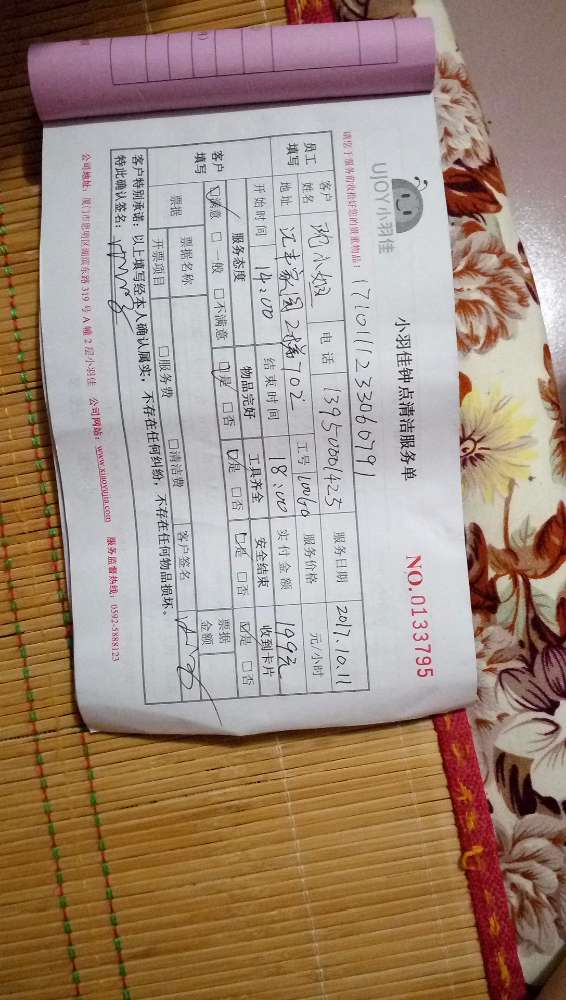 UJOY小羽佳
小羽佳钟点清洁服务单
NO.0133795
请您于服务前收拾好您的贵重物品!
1710111233060791
员工填写 客户姓名 电话 13950001425 服务日期 2017.10.11
地址 汇丰家园2梯702 工号 10060 服务价格 元/小时
开始时间 14:00 结束时间 18:00 实付金额 199元
客户填写 服务态度 物品完好 工具齐全 安全结束 收到卡片
☑满意 □一般 □不满意 ☑是 □否 ☑是 □否 ☑是 □否 ☑是 □否
票据 票据名称 票据金额
开票项目 □服务费 □清洁费 客户签名
客户特别承诺:以上填写经本人确认属实,不存在任何纠纷,不存在任何物品损坏。
特此确认签名:
公司地址:厦门市思明区湖滨东路 319 号 A 幢 2 层小羽佳 公司网站:www.xiaoyujia.com 服务监督热线:0592-5888123